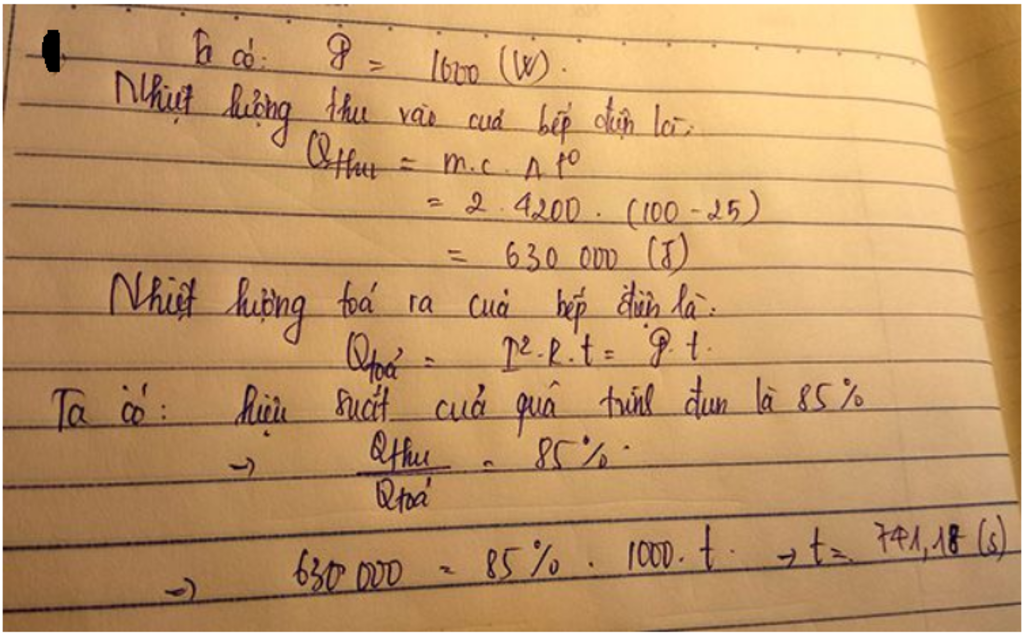 Ta có: P = 1000 (W).
Nhiệt lượng thu vào của bếp điện là:
Qthu = m.c. Δt°
= 2. 4200. (100-25)
= 630 000 (J)
Nhiệt lượng toả ra của bếp điện là:
Qtoả = I².R.t = P.t.
Ta có: hiệu suất của quá trình đun là 85%
→ Qthu / Qtoả = 85%.
→ 630 000 = 85%. 1000. t. → t = 741,18 (s)